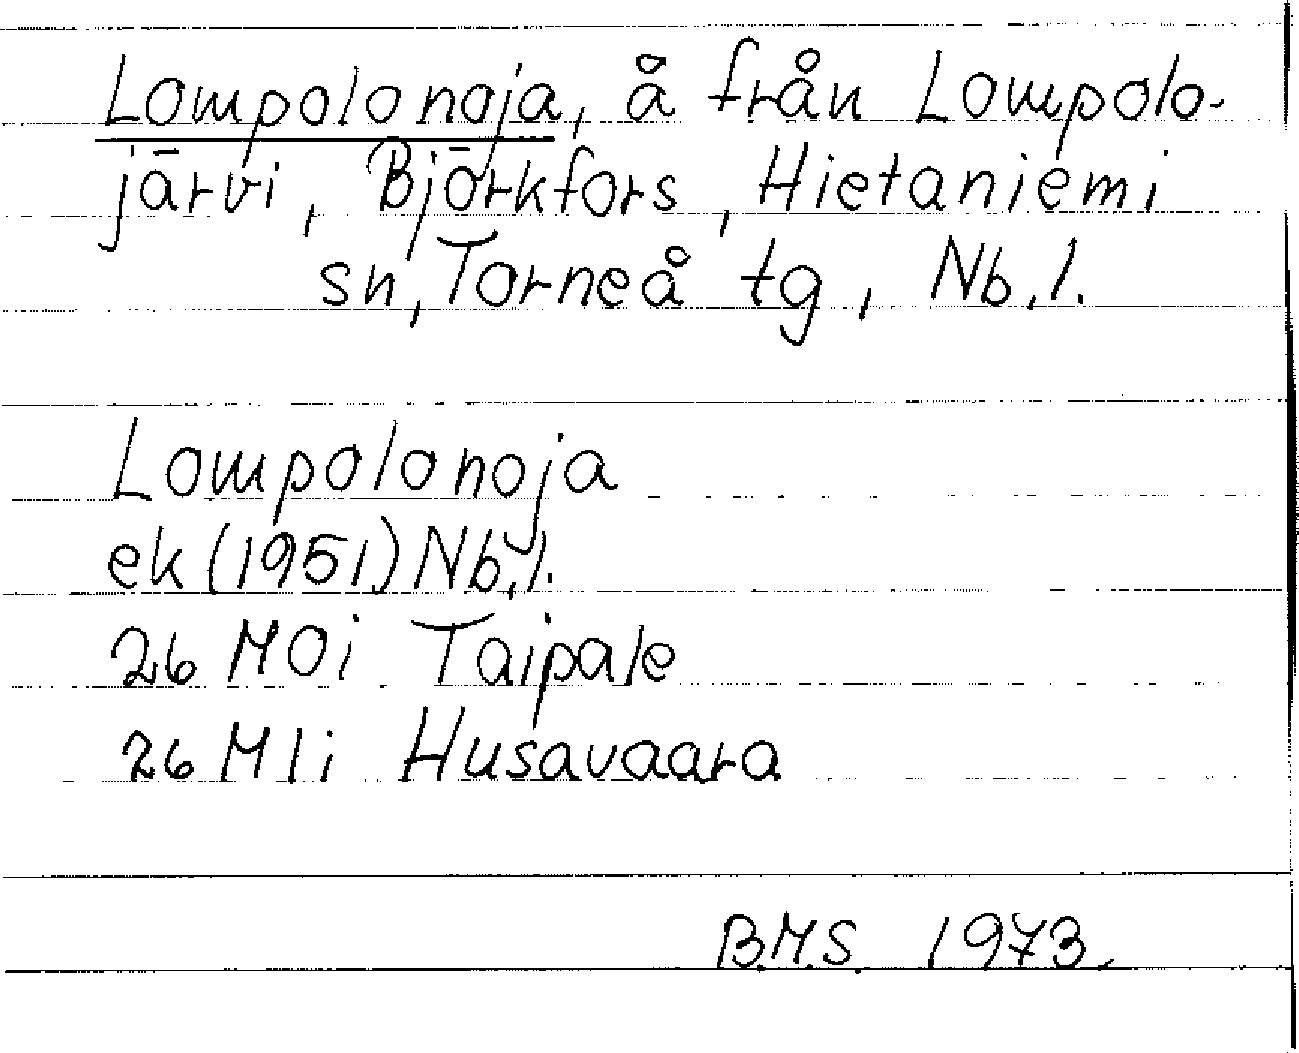 Lompolonoja, å från Lompolo-
järvi, Björkfors, Hietaniemi
sn, Torneå tg, Nb.l.
Lompolonoja
ek (1951) Nb.l.
26 M0i Taipale
26 M1i Husavaara
B.M.S. 1973.